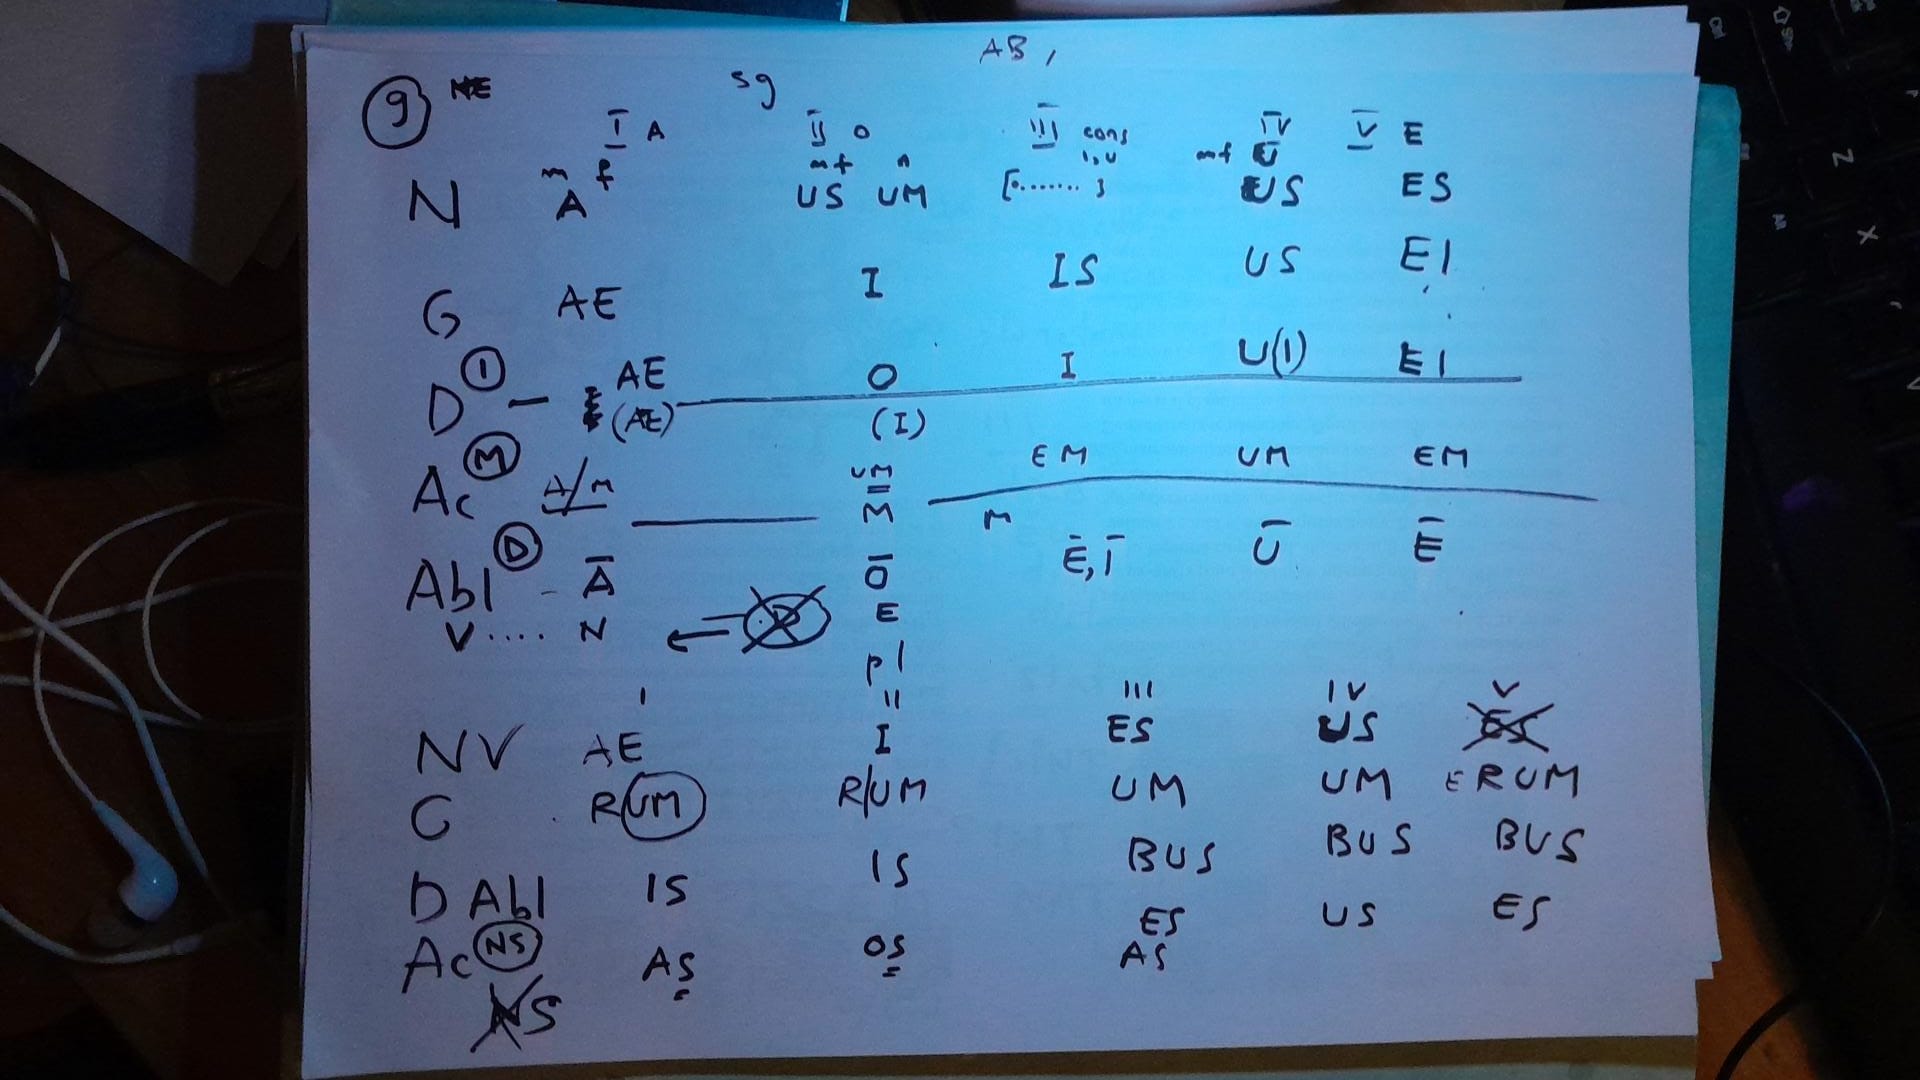 AB,
9 sg
I A II O III cons IV V E
m f mf n I, U mf U
N A US UM [........] US ES
G AE I IS US EI
D I AE O I U(I) EI
(AE) (I)
Ac M A/M UM EM UM EM
M M
Abl D - Ā Ō Ē, Ī Ū Ē
V .... N E
pl
I II III IV V
NV AE I ES US ES
G RUM R/UM UM UM ERUM
D Abl IS IS BUS BUS BUS
Ac NS AS OS ES US ES
AS
NS